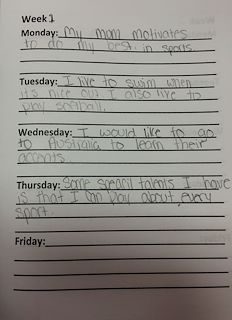 Week 1
Monday: My mom motivates
to do my best in sports.
Tuesday: I live to swim when
it's nice out I also live to
play softball.
Wednesday: I would like to go
to Australia to learn their
accents.
Thursday: Some speacil talents I have
is that I can play about every
sport.
Friday: